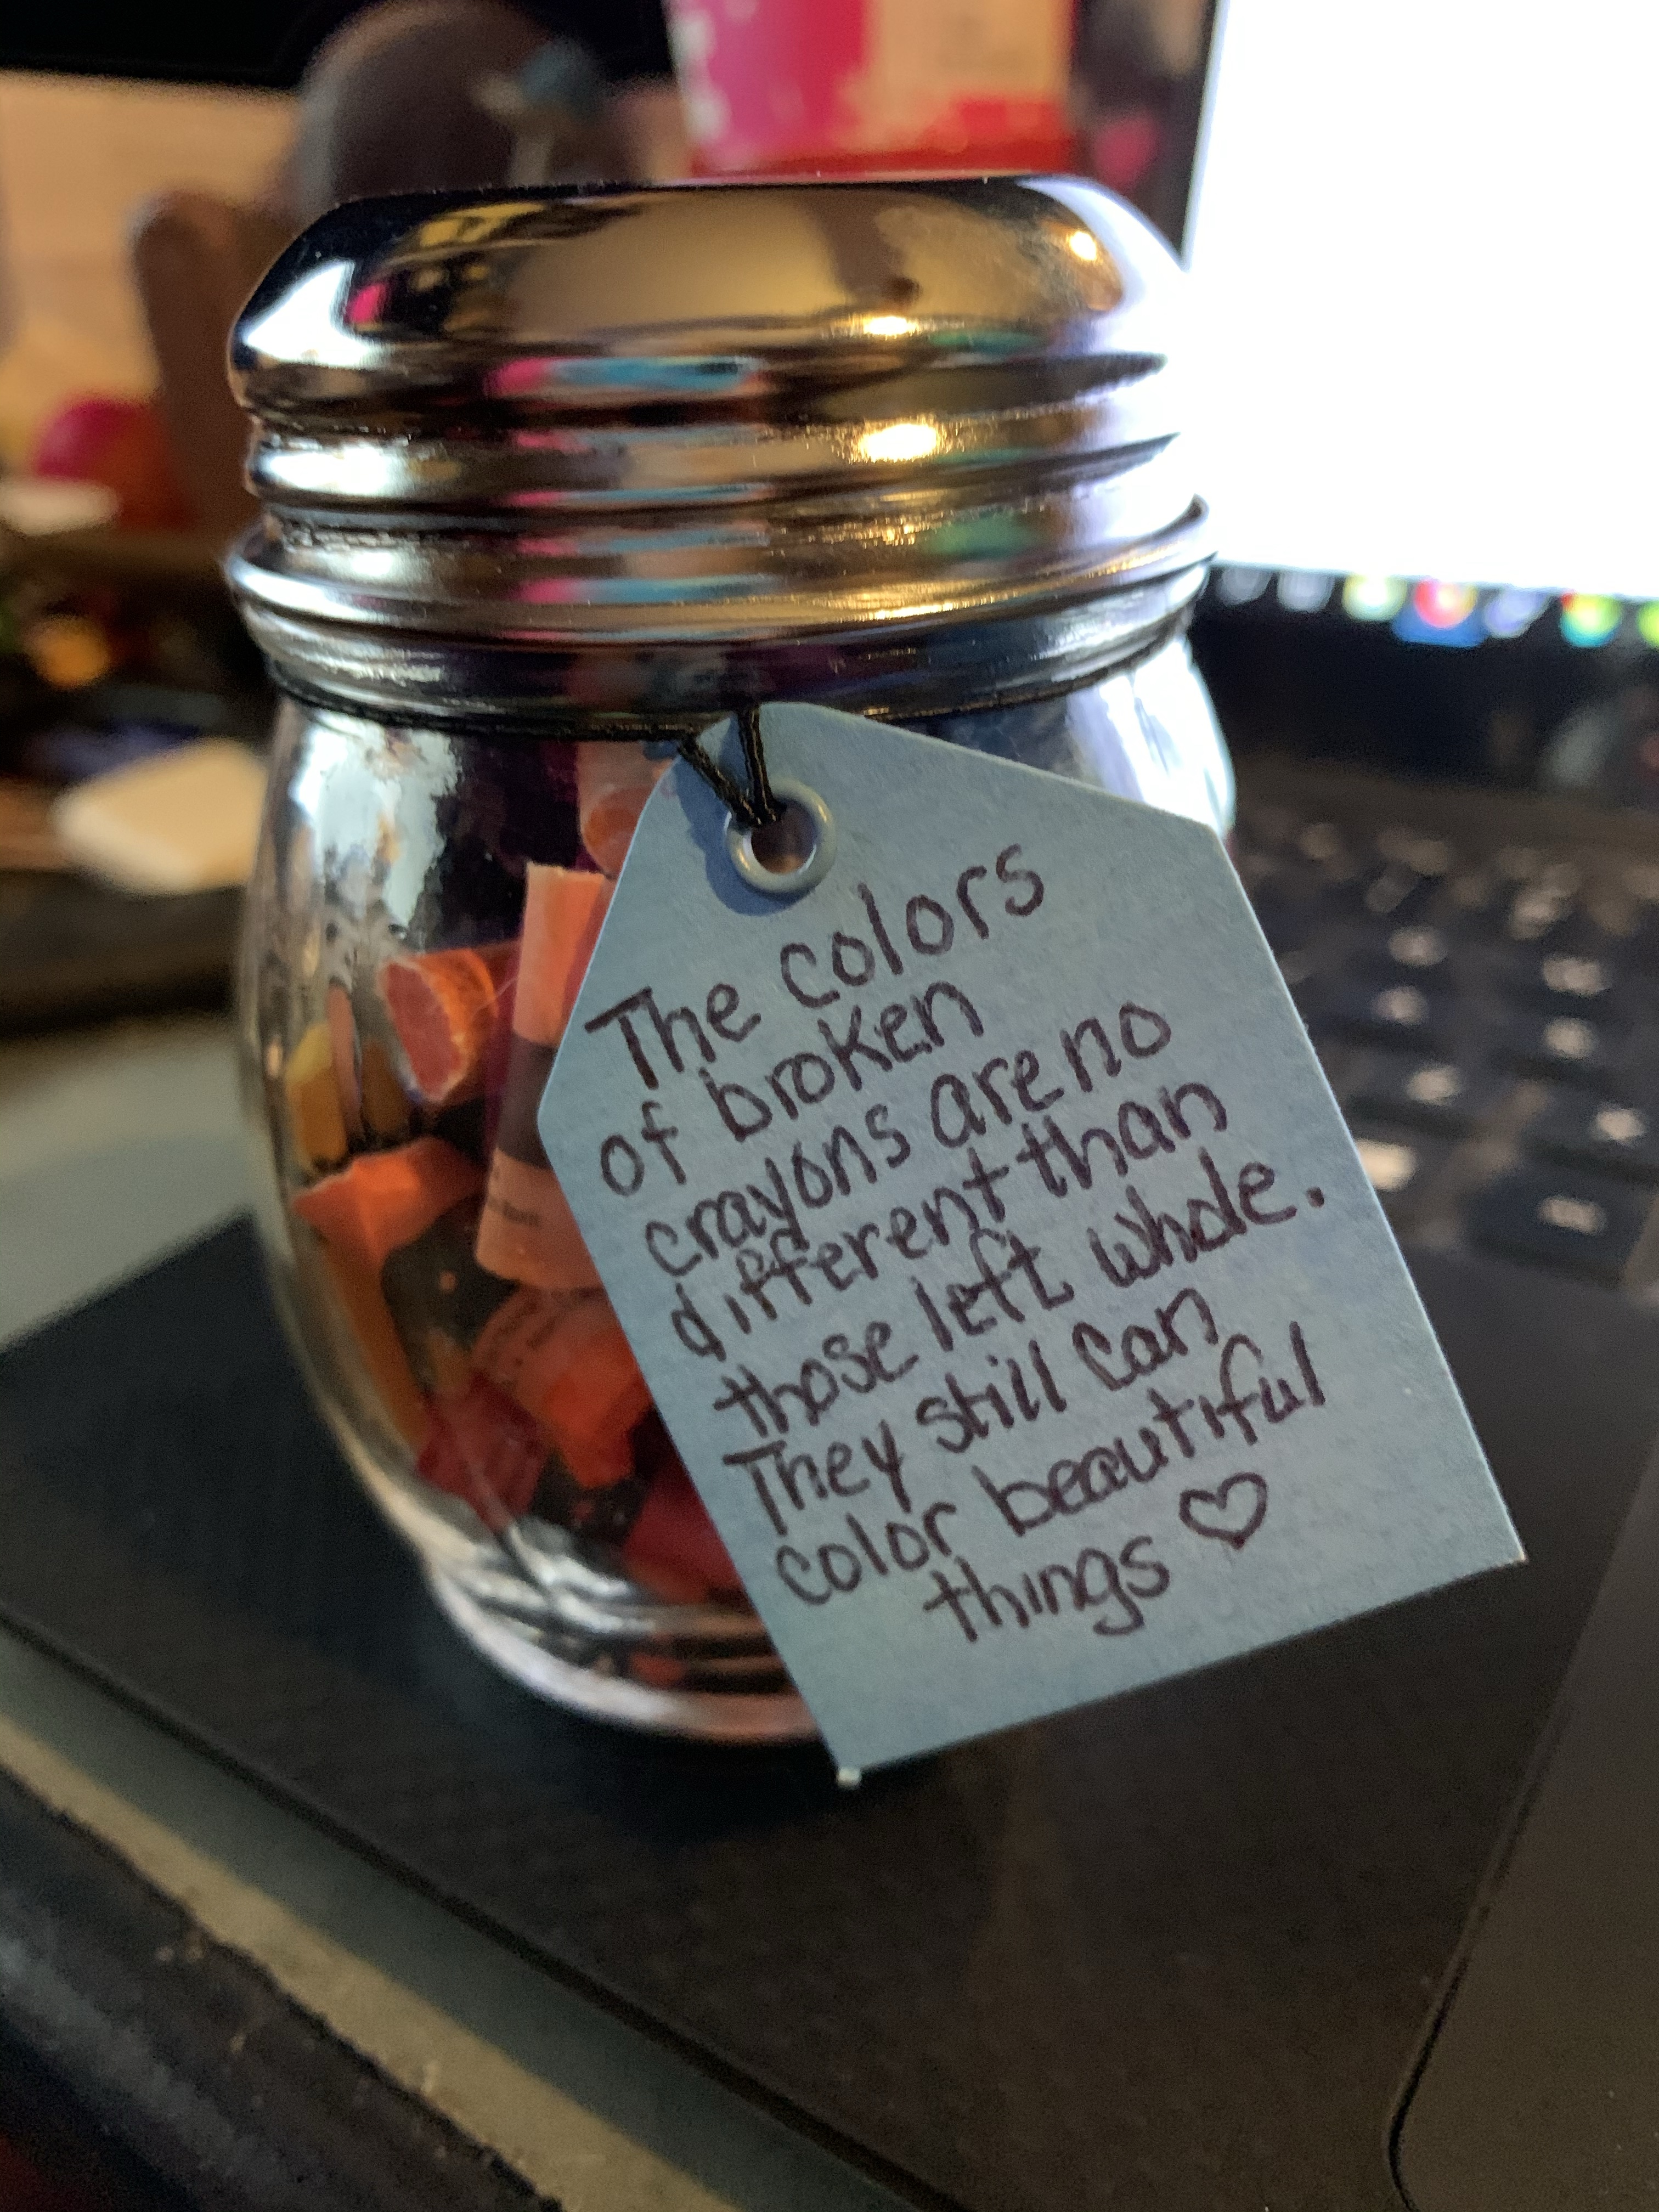 The colors
of broken
crayons are no
different than
those left whole.
They still can
color beautiful
things ♡